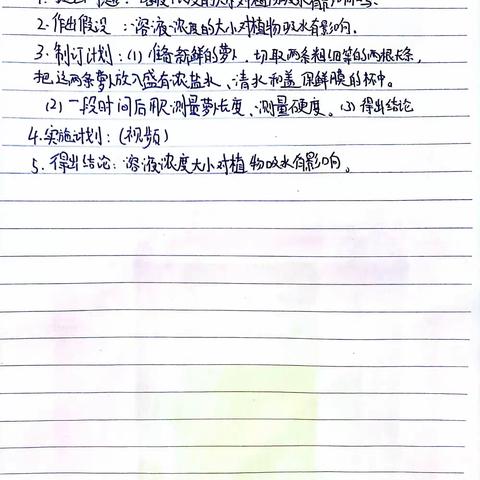 2.作出假设：溶液浓度的大小对植物吸水有影响.
3.制订计划:(1)准备新鲜的萝卜,切取两条粗细等的两根长条,
把这两条萝卜放入盛有浓盐水、清水和盖保鲜膜的杯中。
(2)一段时间后取测量萝卜长度、测量硬度。(3)得出结论
4.实施计划:(视频)
5.得出结论:溶液浓度大小对植物吸水有影响。